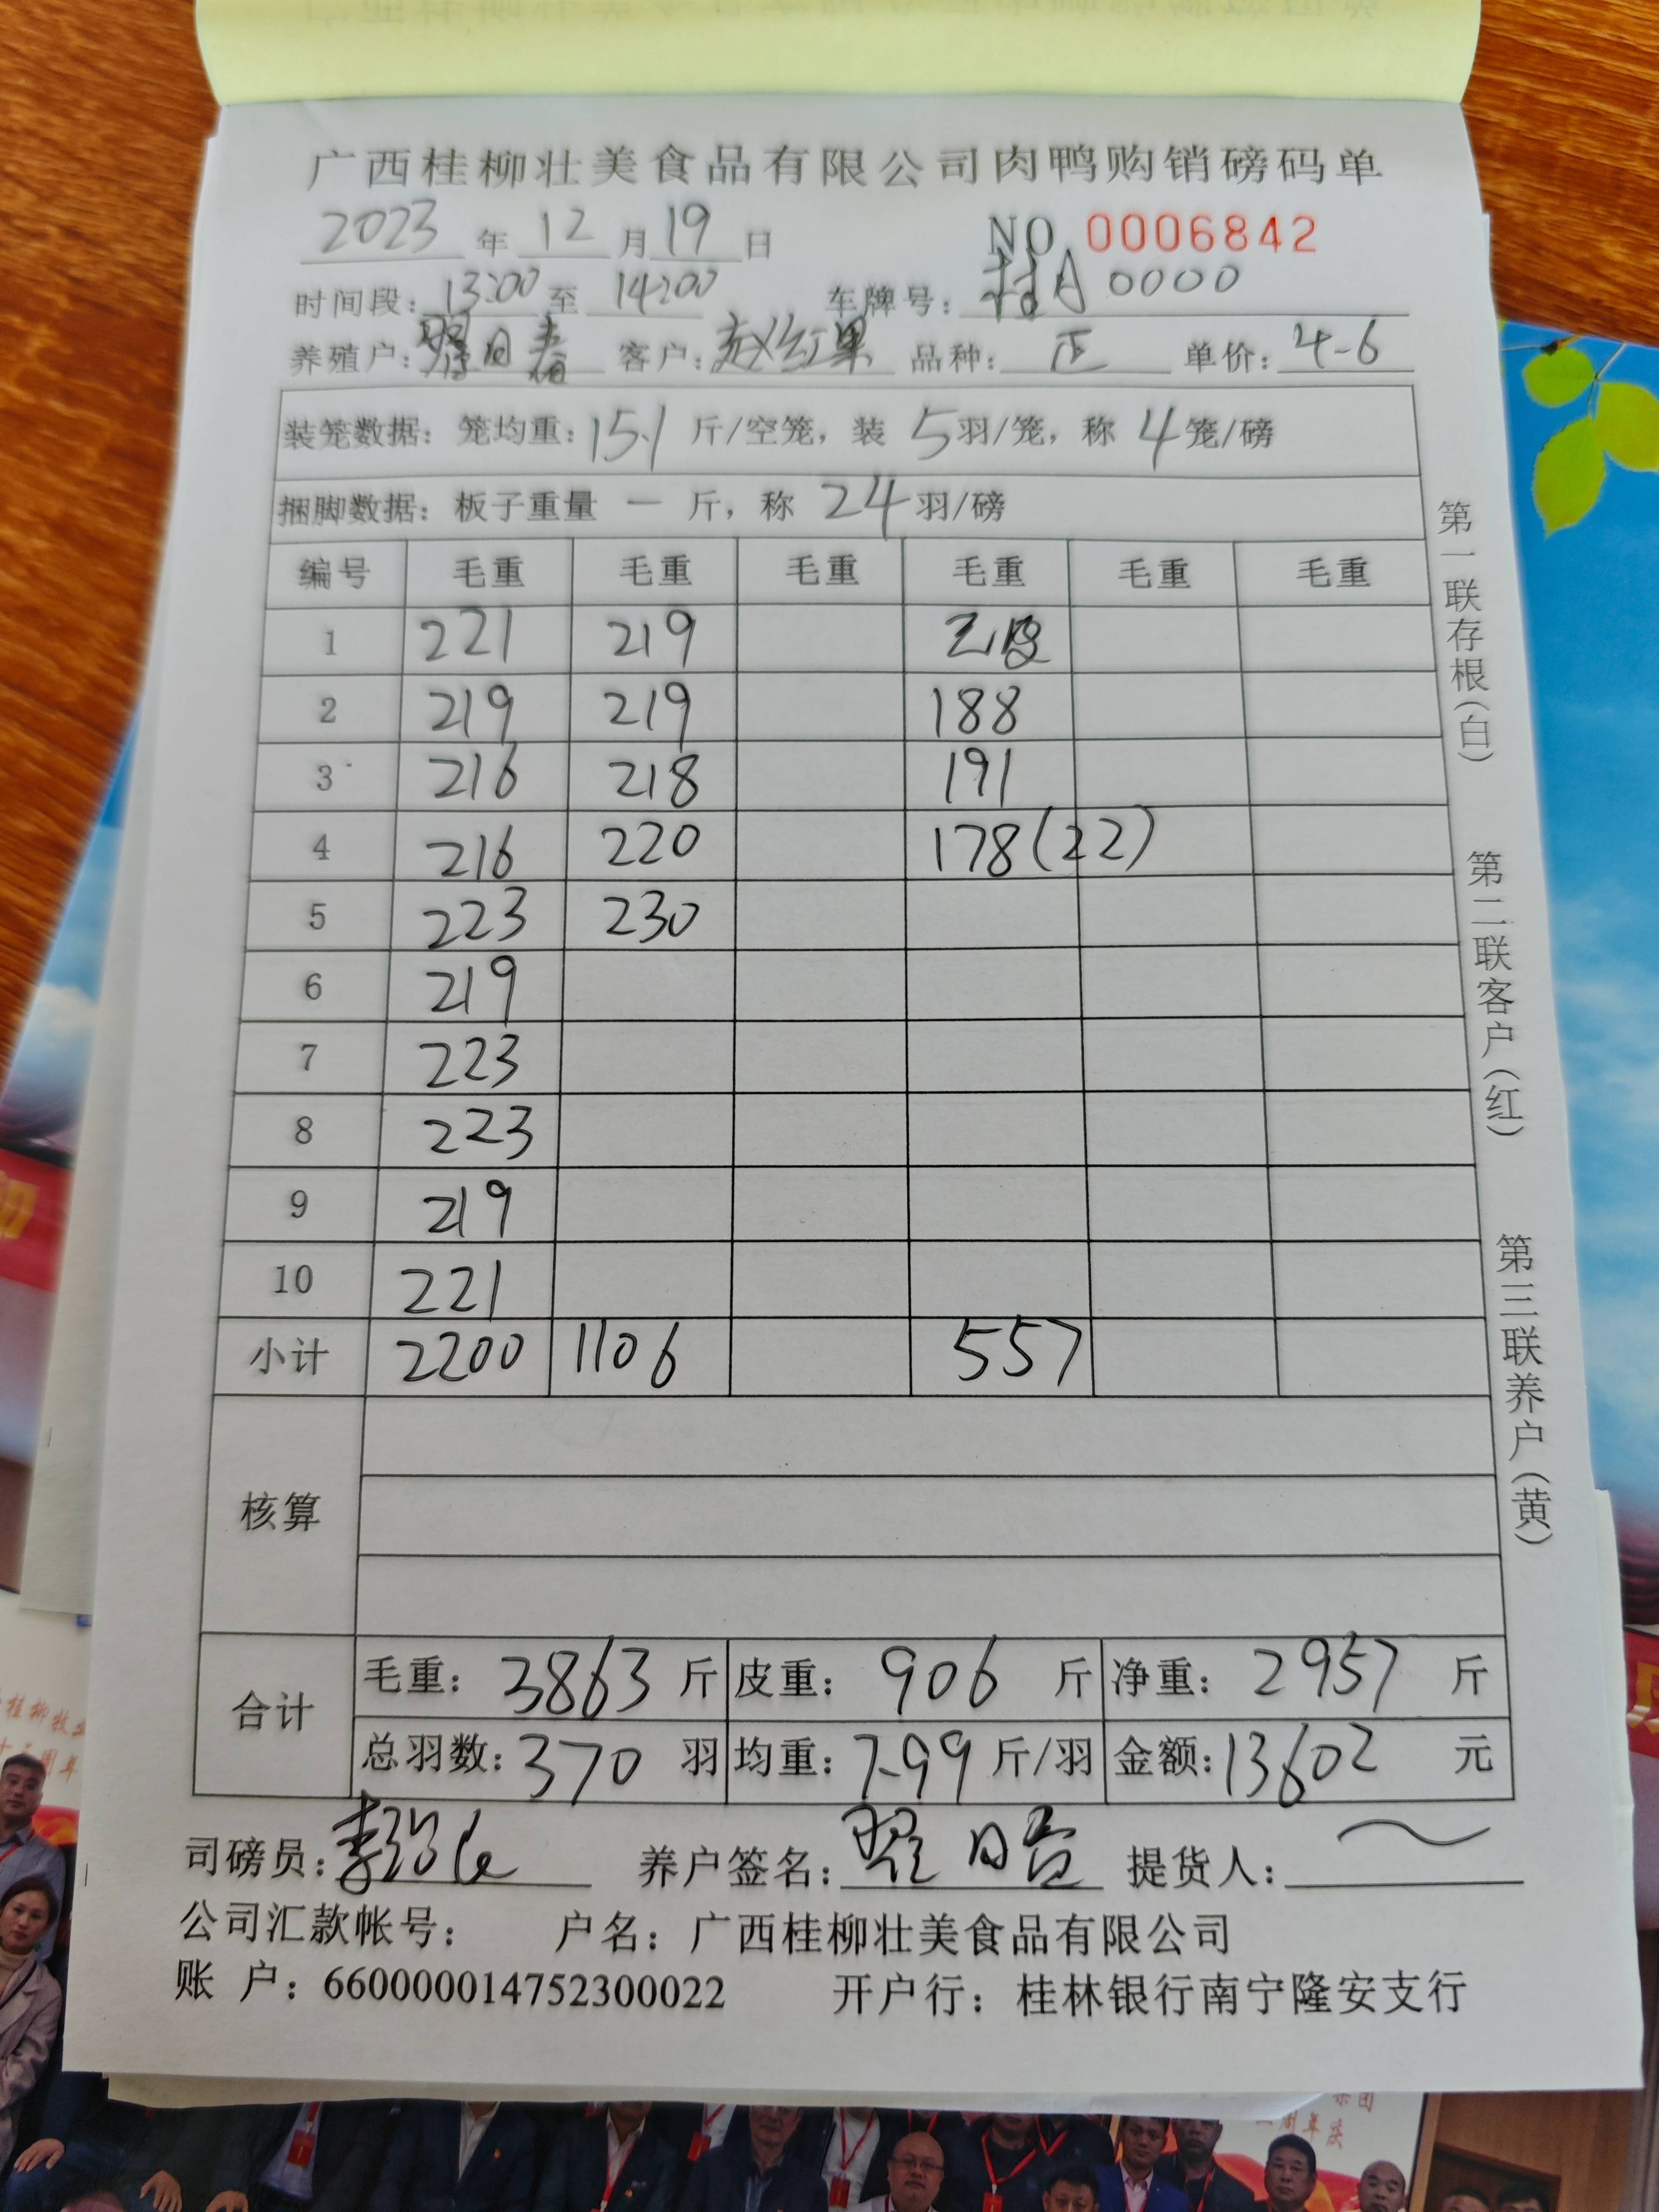 广西桂柳壮美食品有限公司肉鸭购销磅码单
2023 年 12 月 19 日 NO 0006842
时间段：13:00 至 14:00 车牌号：桂A 0000
养殖户： 客户：赵红果 品种：正 单价：4-6
装笼数据：笼均重：15.1 斤/空笼，装 5 羽/笼，称 4 笼/磅
捆脚数据：板子重量 一 斤，称 24 羽/磅
编号 毛重 毛重 毛重 毛重 毛重 毛重
1 221 219
2 219 219 188
3 216 218 191
4 216 220 178(22)
5 223 230
6 219
7 223
8 223
9 219
10 221
小计 2200 1106 557
核算
合计 毛重：3863 斤 皮重：906 斤 净重：2957 斤
总羽数：370 羽 均重：7-99 斤/羽 金额：13602 元
司磅员： 养户签名： 提货人：
公司汇款帐号： 户名：广西桂柳壮美食品有限公司
账 户：660000014752300022 开户行：桂林银行南宁隆安支行
第一联存根(白) 第二联客户(红) 第三联养户(黄)
桂柳牧业
周年庆